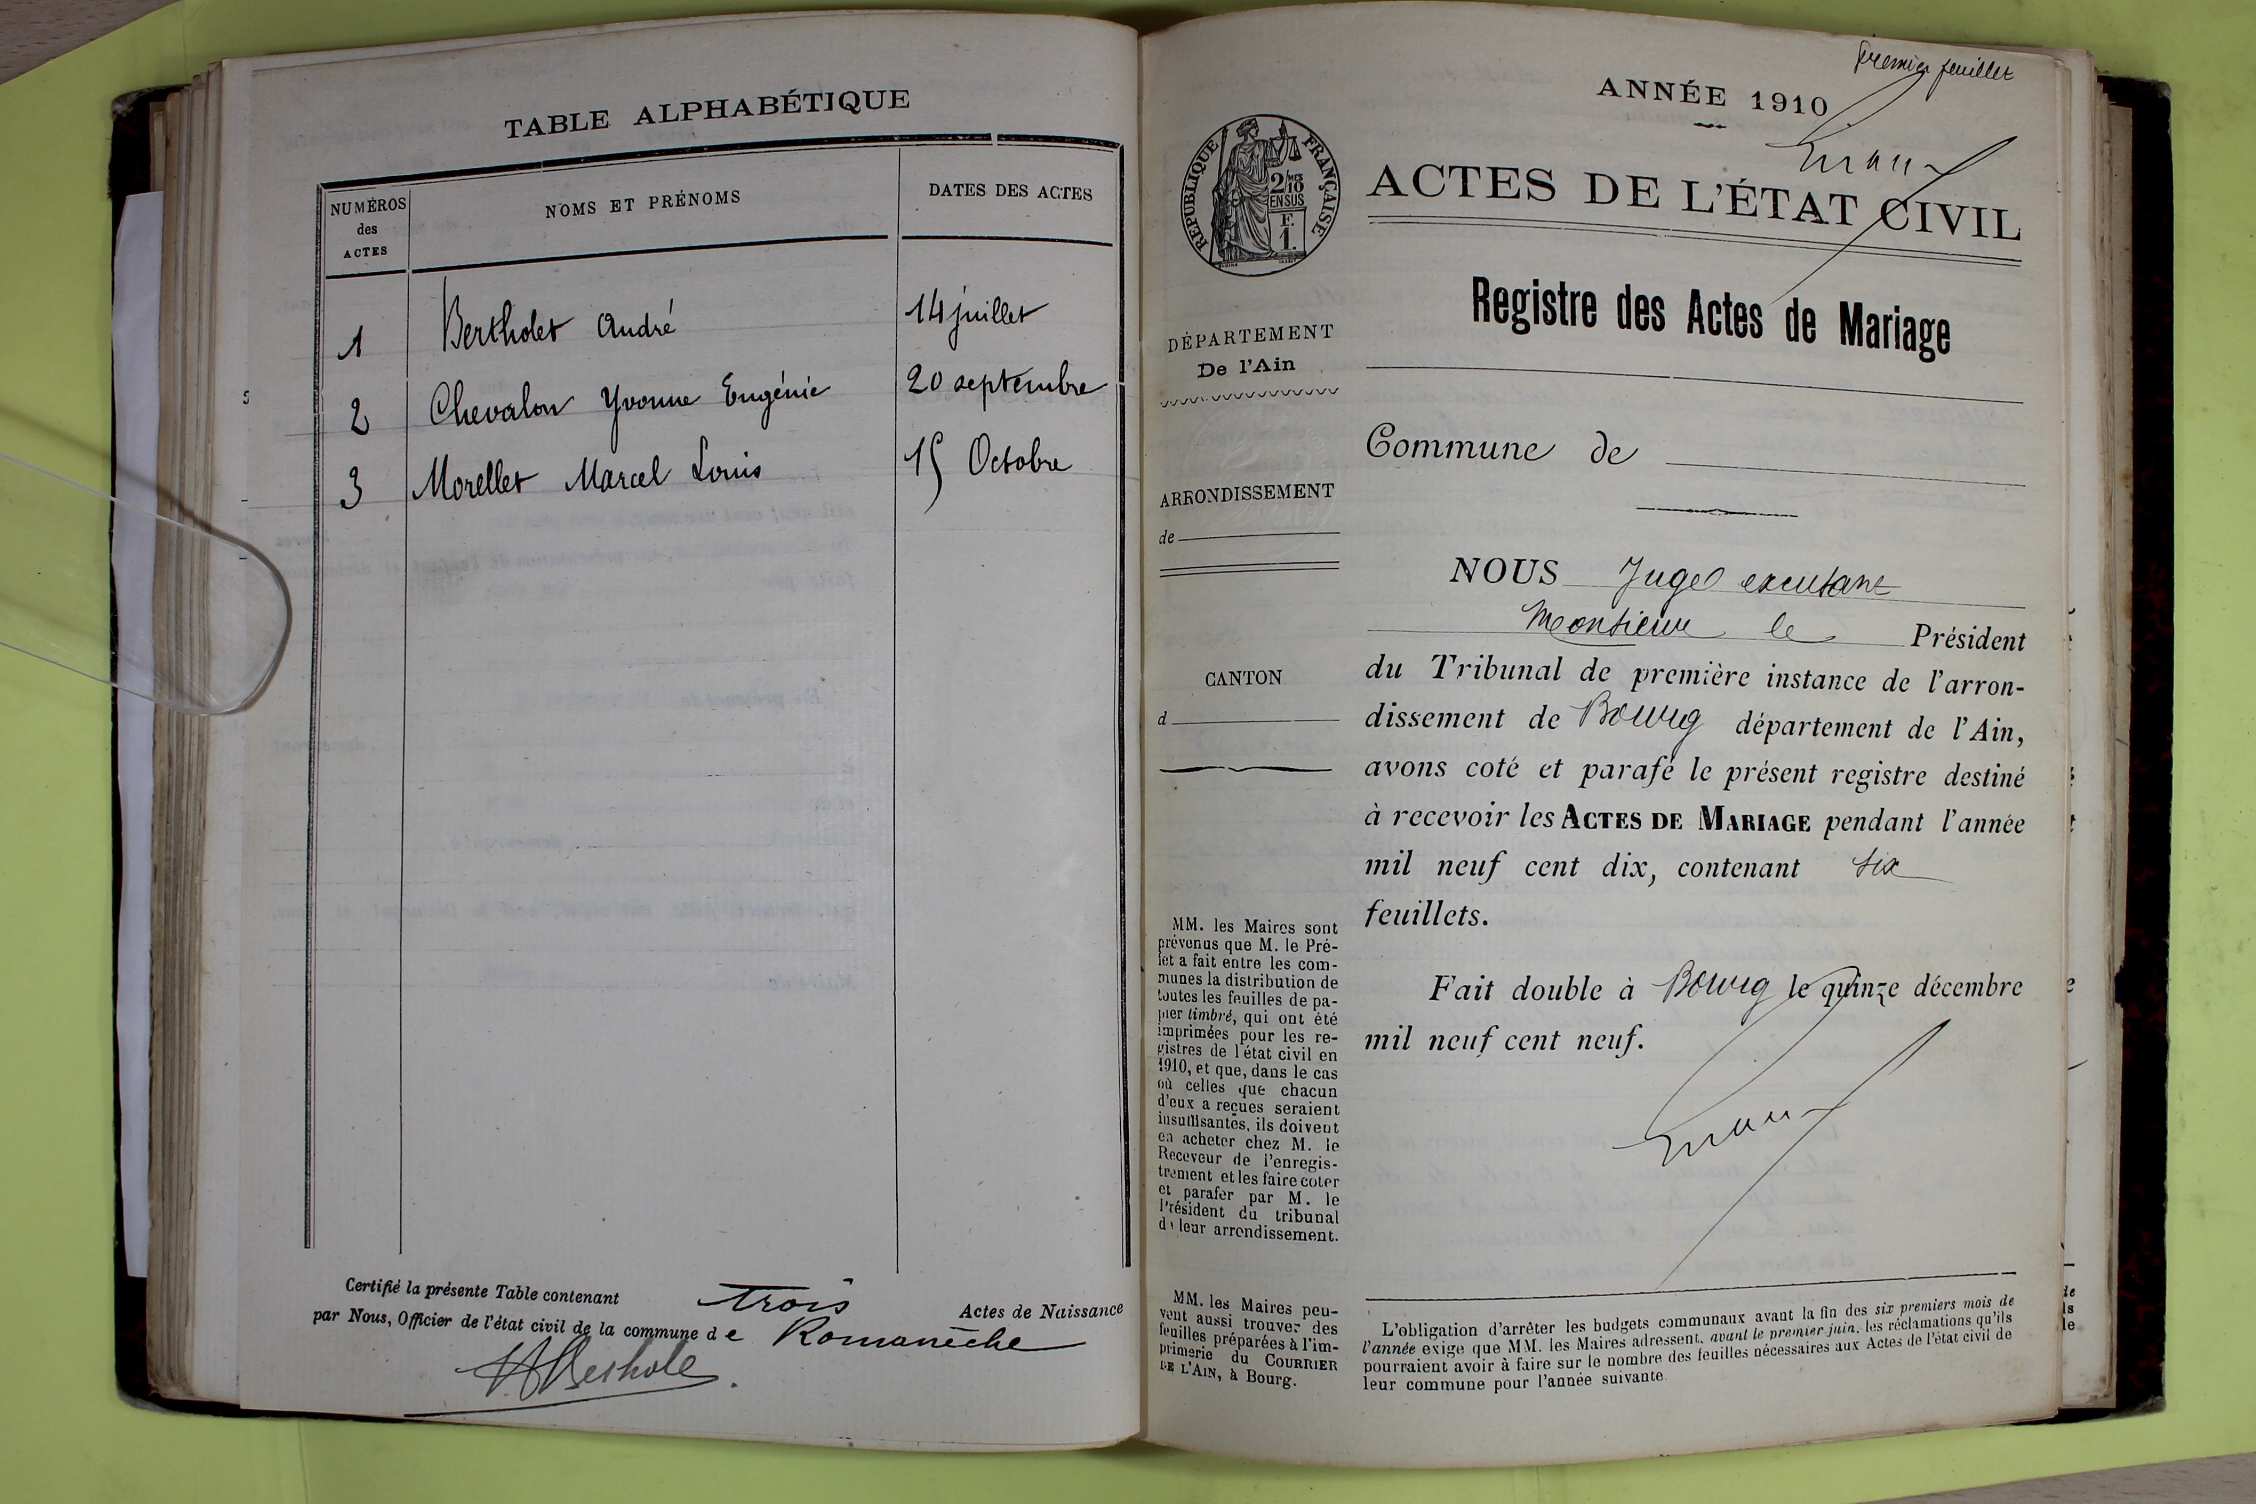 TABLE ALPHABÉTIQUE
NUMÉROS
des
ACTES
NOMS ET PRÉNOMS
DATES DES ACTES
1 Bertholet André 14 juillet
2 Chevalon Yvonne Eugénie 20 septembre
3 Morellet Marcel Louis 15 Octobre
Certifié la présente Table contenant trois Actes de Naissance
par Nous, Officier de l'état civil de la commune de Romanèche
premier feuillet
ANNÉE 1910
RÉPUBLIQUE FRANÇAISE
2/10
MES
EN SUS
F.
1.
ACTES DE L'ÉTAT CIVIL
Registre des Actes de Mariage
DÉPARTEMENT
De l'Ain
Commune de
ARRONDISSEMENT
de
CANTON
d
NOUS Juge excusant
Monsieur le Président
du Tribunal de première instance de l'arron-
dissement de Bourg département de l'Ain,
avons coté et parafé le présent registre destiné
à recevoir les ACTES DE MARIAGE pendant l'année
mil neuf cent dix, contenant six
feuillets.
Fait double à Bourg le quinze décembre
mil neuf cent neuf.
MM. les Maires sont
prévenus que M. le Pré-
fet a fait entre les com-
munes la distribution de
toutes les feuilles de pa-
pier timbré, qui ont été
imprimées pour les re-
gistres de l'état civil en
1910, et que, dans le cas
où celles que chacun
d'eux a reçues seraient
insuffisantes, ils doivent
en acheter chez M. le
Receveur de l'enregis-
trement et les faire coter
et parafer par M. le
Président du tribunal
de leur arrondissement.
MM. les Maires peu-
vent aussi trouver des
feuilles préparées à l'im-
primerie du COURRIER
DE L'AIN, à Bourg.
L'obligation d'arrêter les budgets communaux avant la fin des six premiers mois de
l'année exige que MM. les Maires adressent, avant le premier juin, les réclamations qu'ils
pourraient avoir à faire sur le nombre des feuilles nécessaires aux Actes de l'état civil de
leur commune pour l'année suivante.